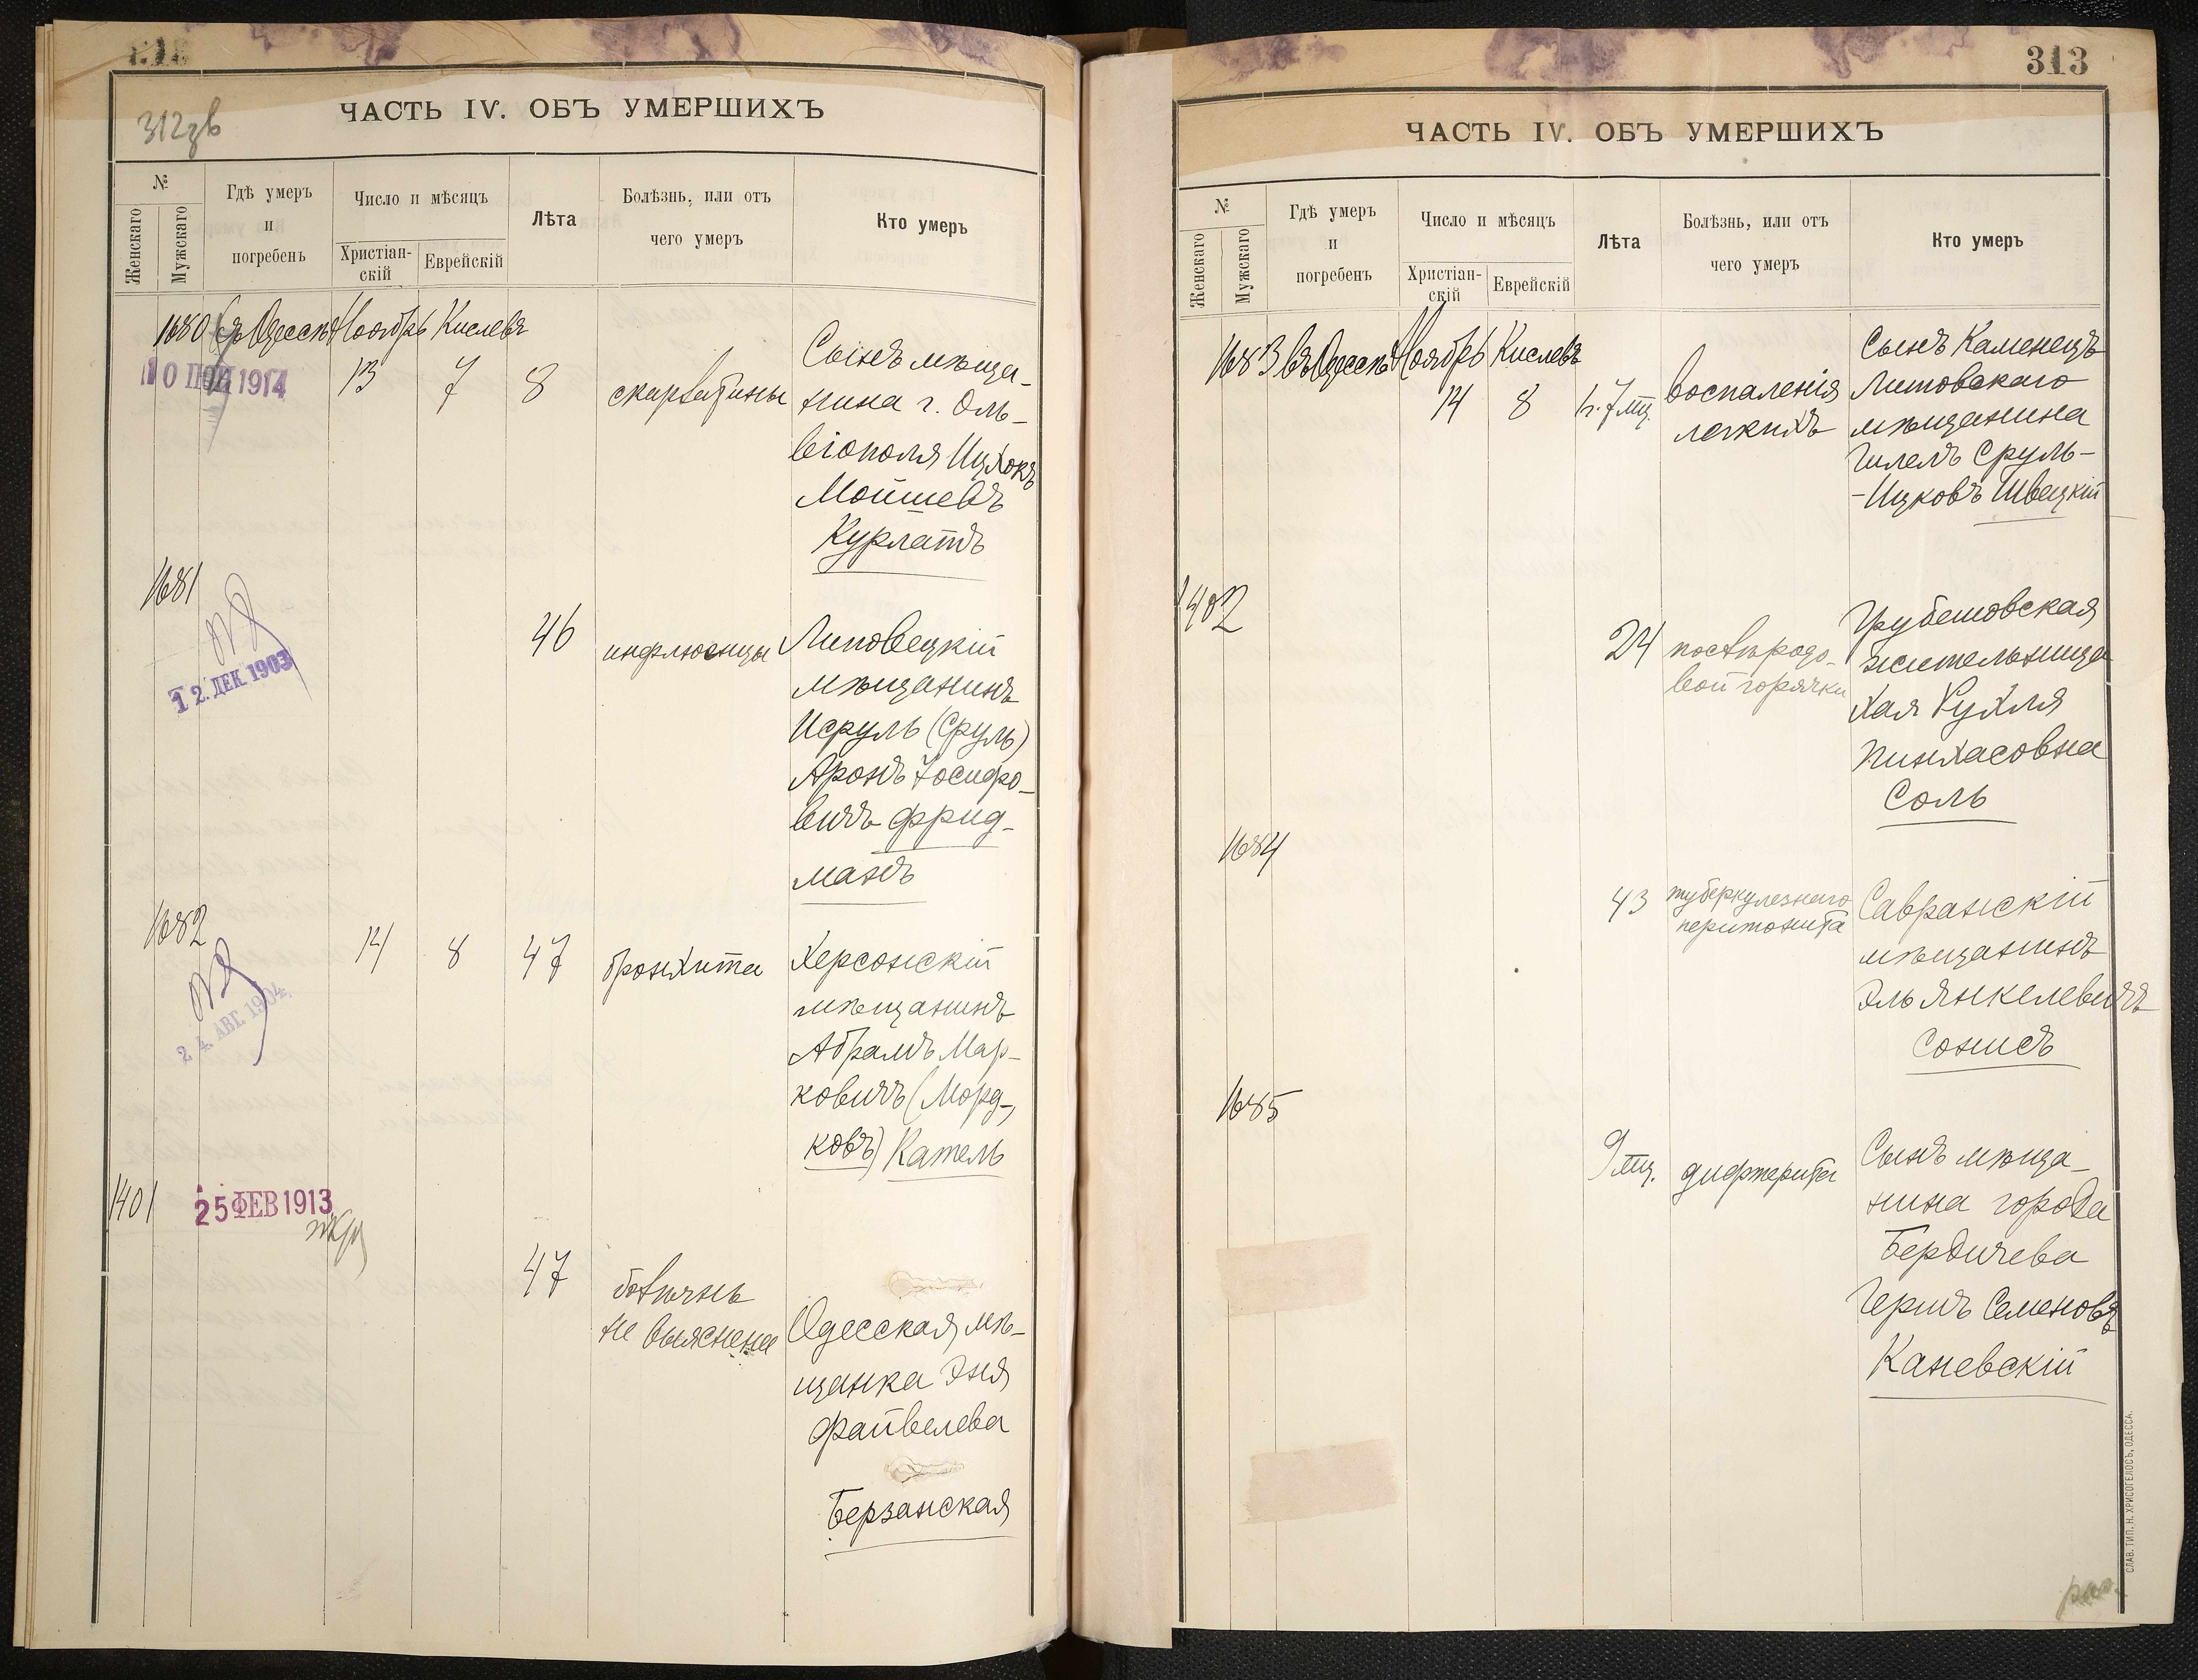 312 зв
ЧАСТЬ IV. ОБЪ УМЕРШИХЪ
№
Женскаго
Мужскаго
Гдѣ умеръ
и
погребенъ
Число и мѣсяцъ
Христіан-
скій
Еврейскій
Лѣта
Болѣзнь, или отъ
чего умеръ
Кто умеръ
1680 въ Одессѣ Ноябрь Кислевъ
1914
13 7 8 скарлатины
Сынъ мѣща-
нина г. Оль-
віополя Ицхокъ
Мойшевъ
Курлатъ
1681
12. ДЕК. 1903
46 инфлюенцы
Липовецкій
мѣщанинъ
Исруль (Сруль)
Аронъ Іосифо-
вичъ Фрид-
манъ
1682
24. АВГ. 1904
14 8 47 бронхита
Херсонскій
мѣщанинъ
Абрамъ Мар-
ковичъ (Морд-
ковъ) Кательь
1401
25 ФЕВ 1913
47 болѣзнь
не выяснена
Одесская мѣ-
щанка Эня
Файвелева
Берзанская
313
ЧАСТЬ IV. ОБЪ УМЕРШИХЪ
№
Женскаго
Мужскаго
Гдѣ умеръ
и
погребенъ
Число и мѣсяцъ
Христіан-
скій
Еврейскій
Лѣта
Болѣзнь, или отъ
чего умеръ
Кто умеръ
1683 въ Одессѣ Ноябрь Кислевъ
14 8 7 мц. воспаленія
легкихъ
Сынъ Каменецъ
Литовскаго
мѣщанина
Гилелъ Сруль-
-Ицковъ Швецкій
1402
24 послѣродо-
вой горячки
Грубешовская
жительница
Хая Рухля
Пинхасовна
Соль
1684
43 туберкулезнаго
перитонита
Савранскій
мѣщанинъ
Эль Янкелевичъ
Сонисъ
1685
9 мц. дифтерита
Сынъ мѣща-
нина города
Бердичева
Гершъ Семеновъ
Каневскій
СЛАВ. ТИП. Н. ХРИСОГЕЛОСЪ, ОДЕССА.